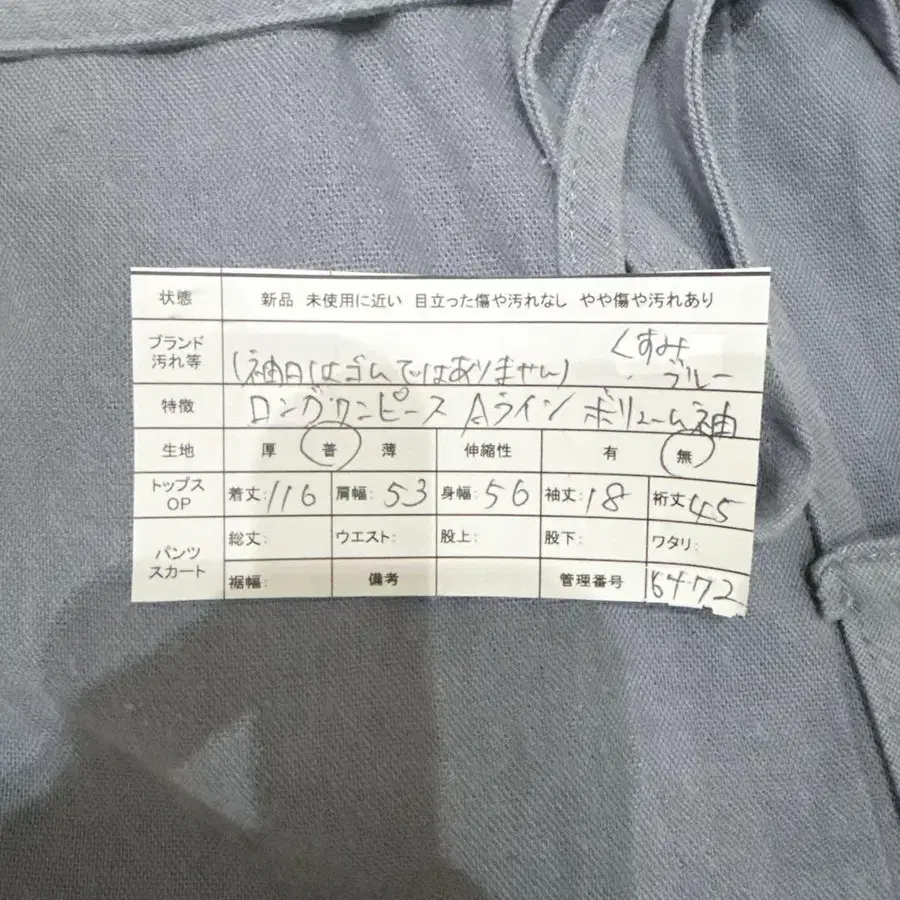 状態 新品 未使用に近い 目立った傷や汚れなし やや傷や汚れあり
ブランド
汚れ等
くすみ
ブルー
(袖口はゴムではありません)
特徴 ロングワンピース Aライン ボリューム袖
生地 厚 普 薄 伸縮性 有 無
トップス
OP
着丈:116 肩幅:53 身幅:56 袖丈:18 裄丈45
パンツ
スカート
総丈: ウエスト: 股上: 股下: ワタリ:
裾幅: 備考 管理番号 16472